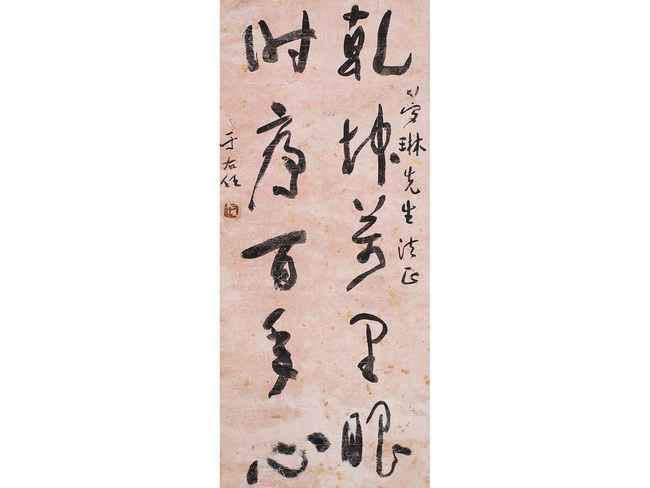 夢琳先生法正
乾坤萬里眼
時序百年心
于右任